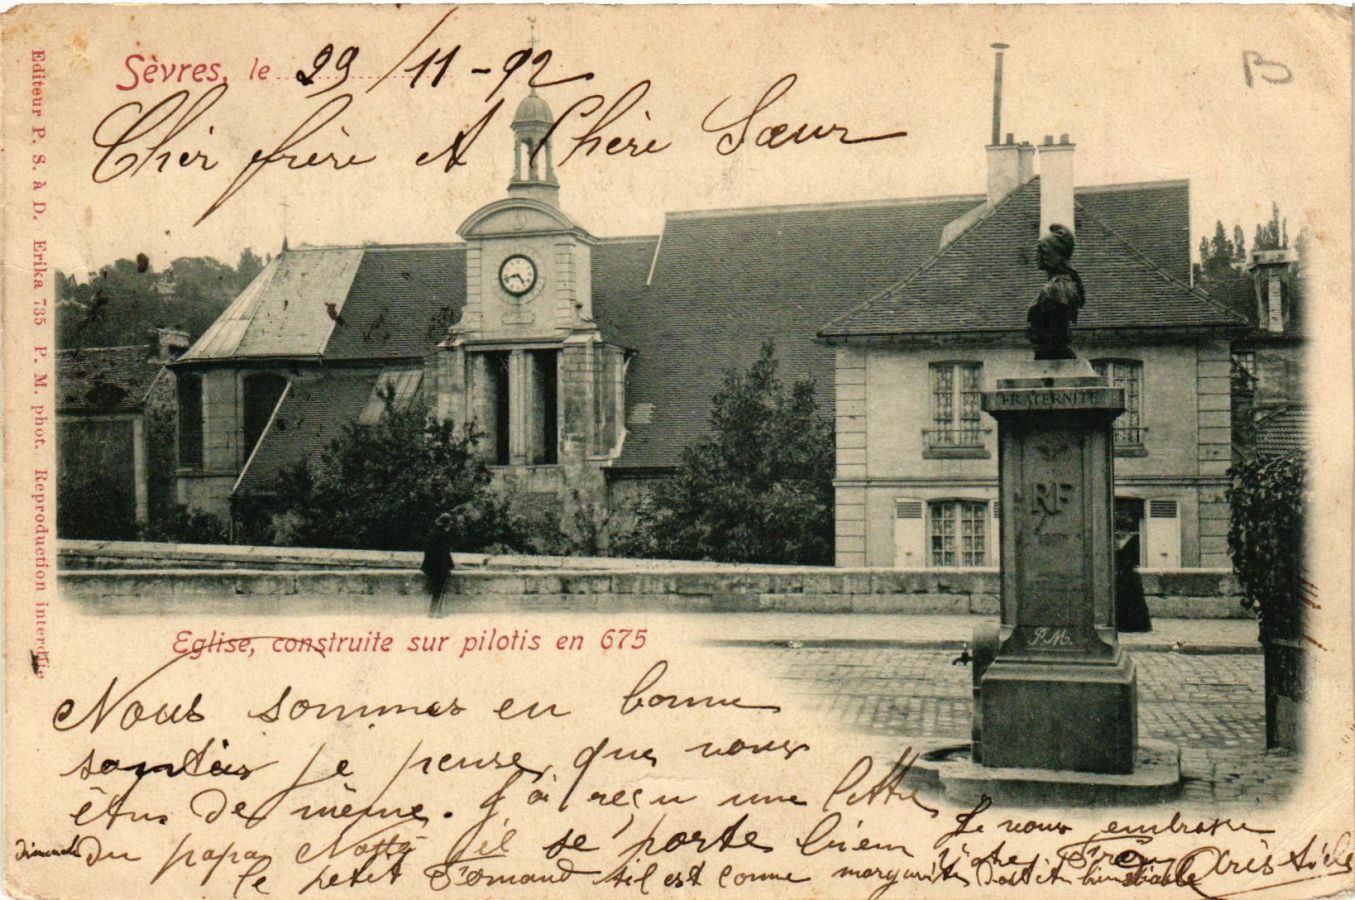 Sèvres, le 29/11-92
B
Cher frère et Chère Sœur
Editeur P. S. à D. Erika 735 P. M. phot. Reproduction interdite
FRATERNITÉ
RF
P.M.
Eglise, construite sur pilotis en 675
Nous sommes en bonne
santés je pense que vous
êtes de même. J'ai reçu une lettre
dimanche du papa il se porte bien
le petit Armand s'il est comme marguerite
Je vous embrasse
Votre frère Aristide